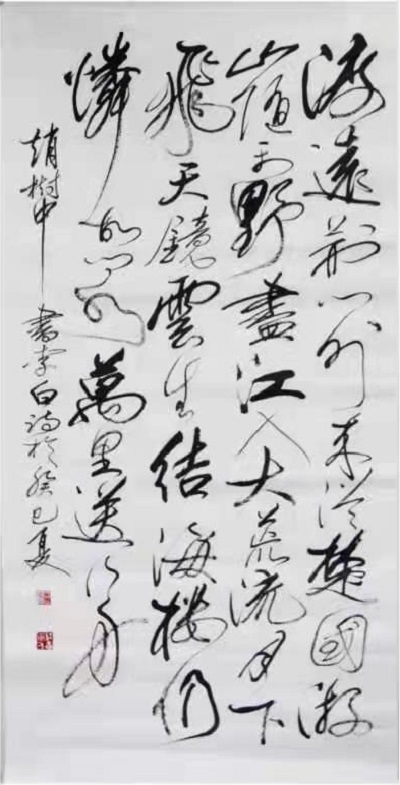 渡遠荊门外来從楚國游
山随平野盡江入大荒流月下
飛天鏡雲生结海樓仍
憐故乡水萬里送行舟
趙树中書李白诗於癸巳夏